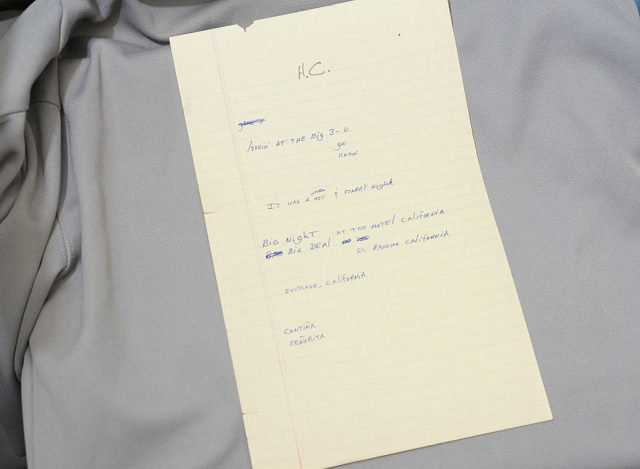 H.C.
lookin' AT THE Big 3-0
go
KNOW
WARM
IT WAS A HOT & STARRY Night
BIG NighT AT THE HOTEl CAliforniA
BIG DEAl EL RANCHO CAliforniA
SUITCASE, CAliforniA
CANTiÑA
SEÑORITA